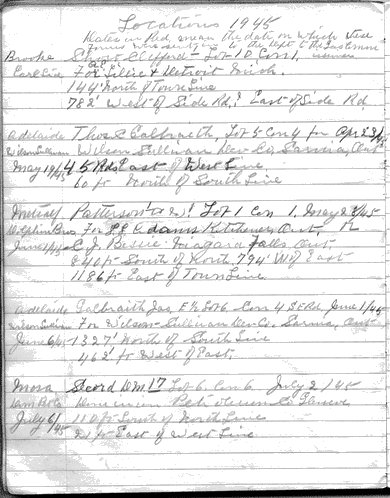 Locations 1945
Dates in Red mean the date on which these
forms were sent to the Dept
Brooke Clifford - Lot 1 D Con 1,
For Lillie & Detroit Mich.
144 North of Town Line
782 West of Side Rd, East of Side Rd
Adelaide Thos Galbraith, Lot 5 Con 4 for Apr 23/45
Wilson Sullivan Wilson Sullivan Dev Co, Sarnia, Ont
May 19/45 45 Rds East of West Line
60 ft North of South Line
Patterson Lot 1 Con 1. May 23/45
Dolphin Bros For Adams Kitchener, Ont
June 1/45 C. J. Niagara Falls, Ont
846 ft South of North, 794 W of East
1186 ft East of Town Line
Adelaide Galbraith Jas, E ½ Lot 6 Con 4 June 1/45
Wilson Sullivan For Wilson-Sullivan Dev Co. Sarnia, Ont
June 6/45 1327 North of South Line
462 ft West of East,
Mosa Secord Wm 17 Lot 6 Con 6 July 2/45
Dominion Petroleum Co Glencoe
July 6/45 110 ft South of North Line
ft East of West Line